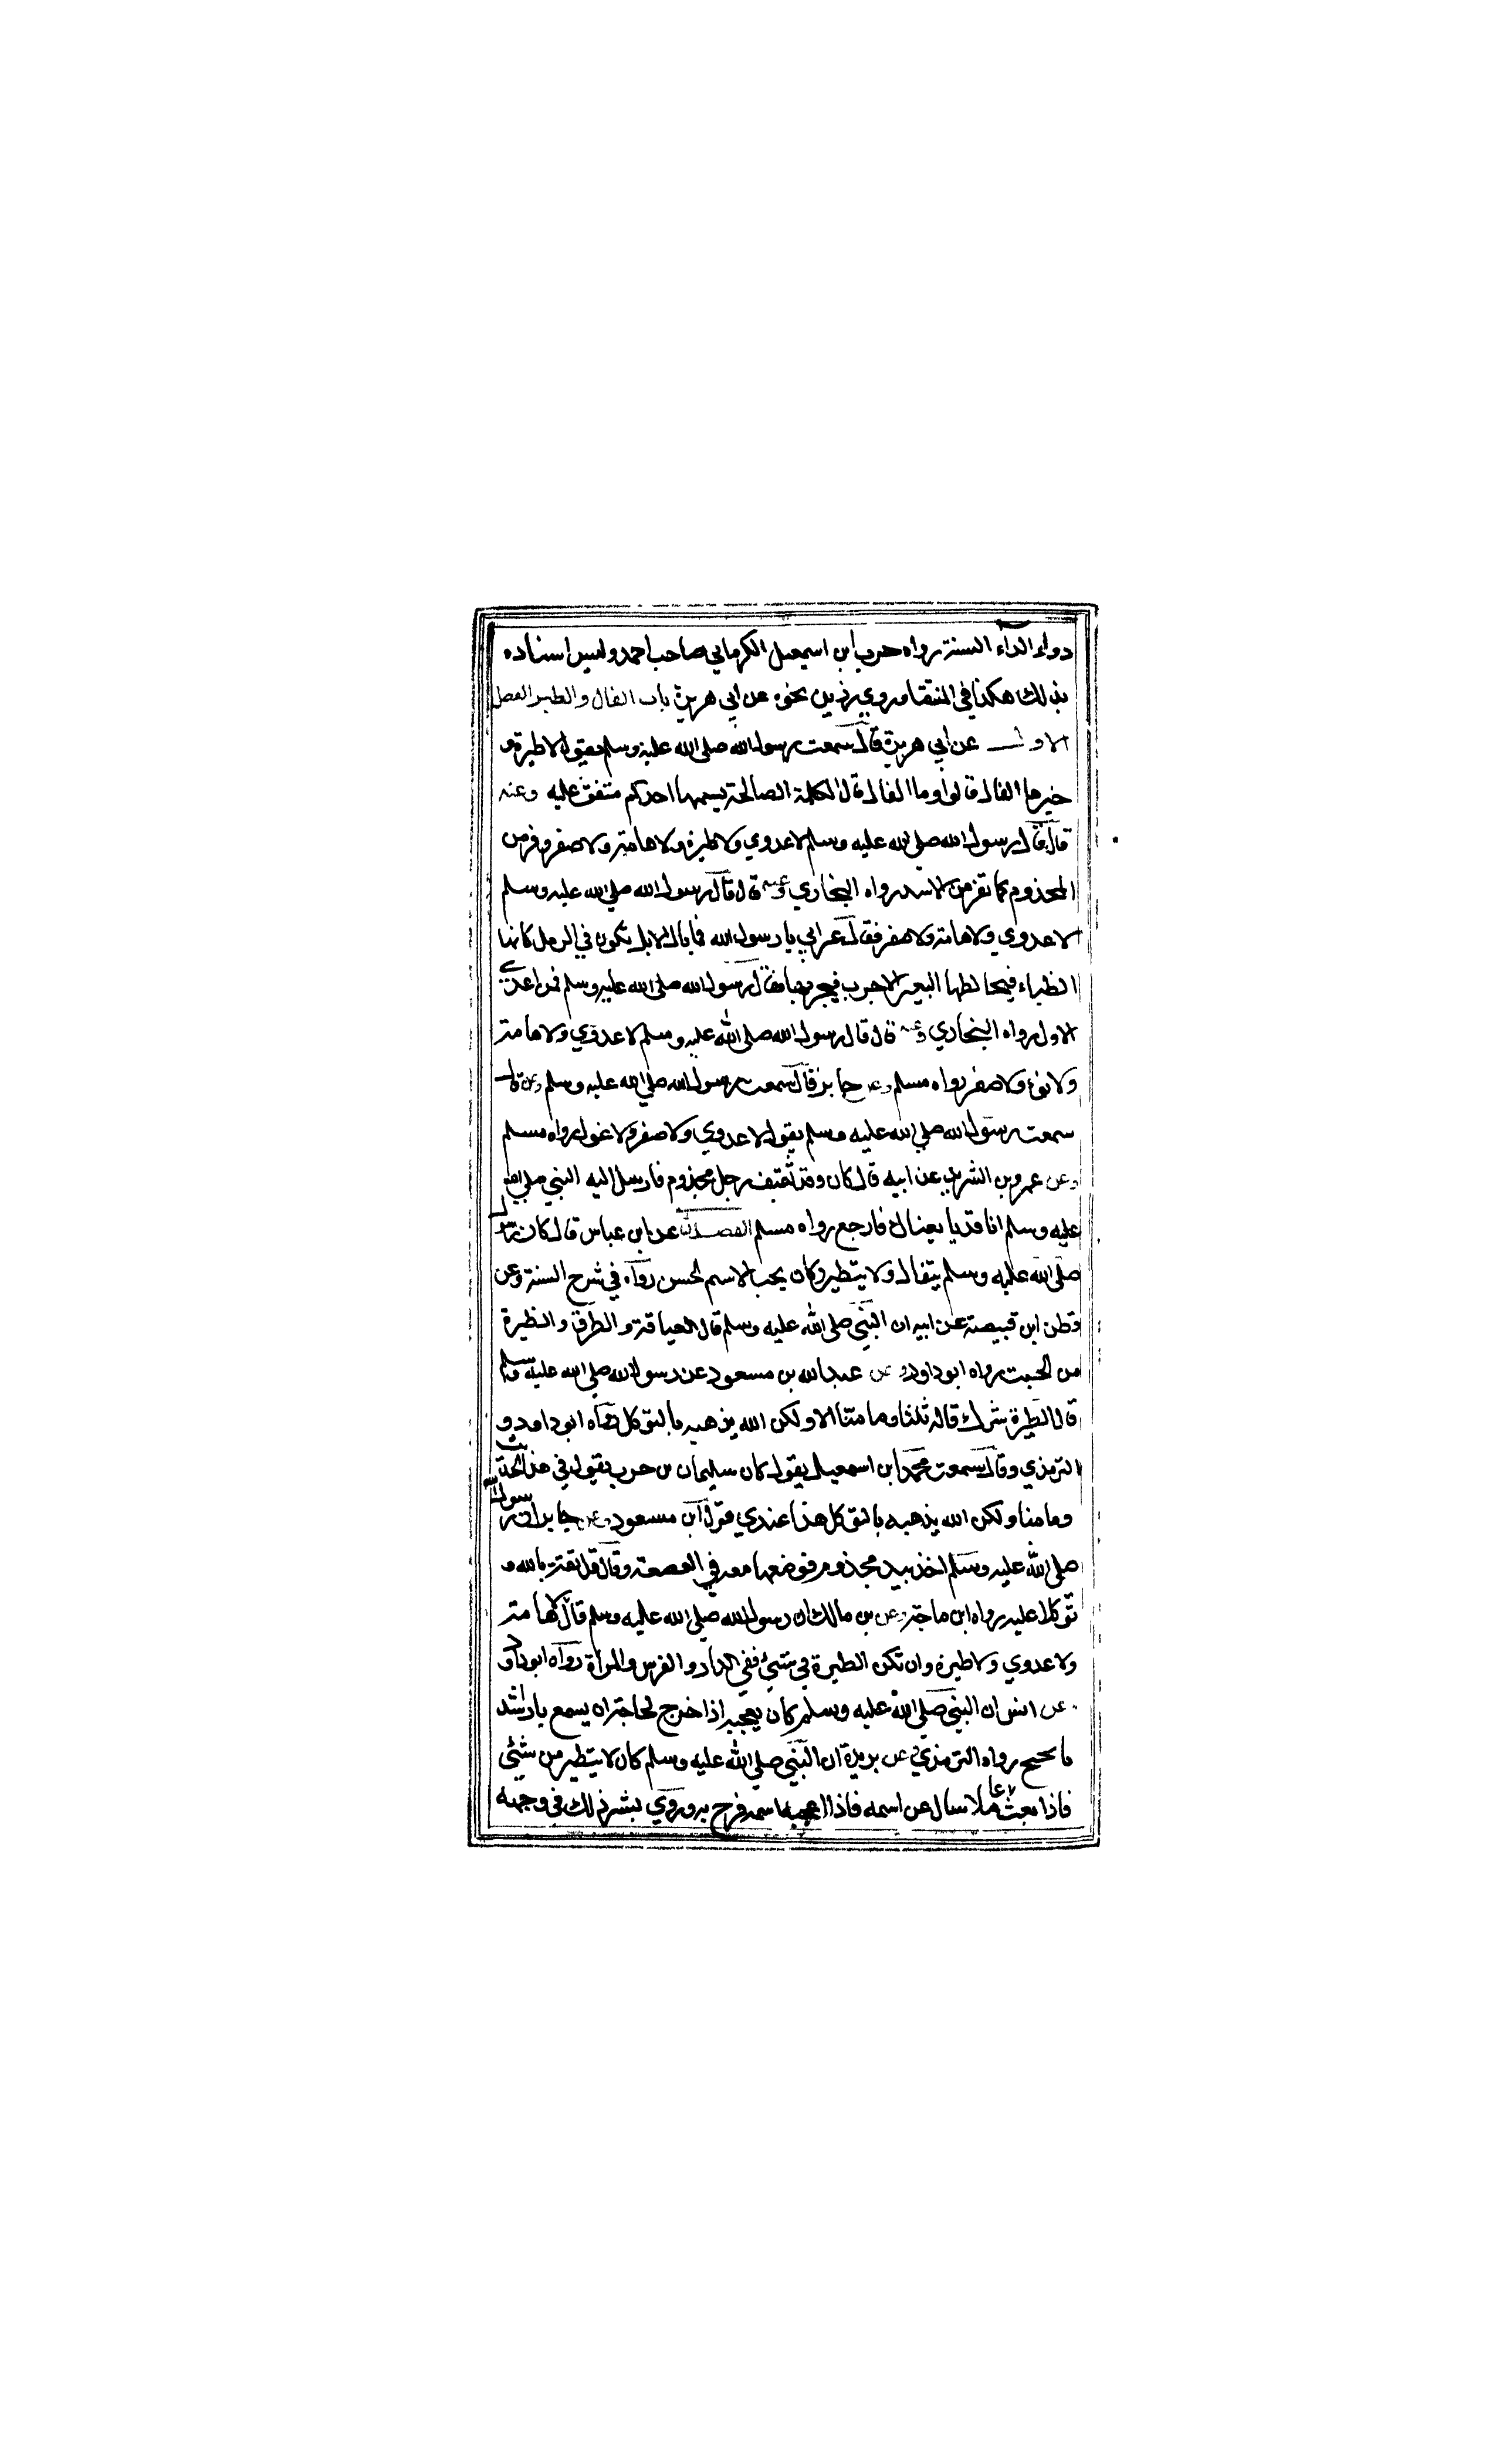 دواء الداء السنة رواه حرب ابن اسمعيل الكرماني صاحب احمد وليس اسناده
بذلك هكذا في المنتقا وروي رزين نحوه عن ابي هريرة باب الفال والطير الفصل
الاول عن ابي هريرة قال سمعت رسول الله صلى الله عليه وسلم يقول لا طيرة و
خيرها الفال قالوا وما الفال قال الكلمة الصالحة يسمعها احدكم متفق عليه وعنه
قال قال رسول الله صلى الله عليه وسلم لا عدوي ولا طيرة ولا هامة ولا صفر وفر من
المجذوم كما تفر من الاسد رواه البخاري وعنه قال قال رسول الله صلى الله عليه وسلم
لا عدوي ولا هامة ولا صفر فقال اعرابي يا رسول الله فما بال الابل تكون في الرمل كانها
الظباء فيخالطها البعير الاجرب فيجربها فقال رسول الله صلى الله عليه وسلم فمن اعدي
الاول رواه البخاري وعنه قال قال رسول الله صلى الله عليه وسلم لا عدوي ولا هامة
ولا نوء ولا صفر رواه مسلم وعن جابر قال سمعت رسول الله صلى الله عليه وسلم وعن قال
سمعت رسول الله صلى الله عليه وسلم يقول لا عدوي ولا صفر ولا غول رواه مسلم
وعن عمرو بن الشريد عن ابيه قال كان وفد ثقيف رجل مجذوم فارسل اليه النبي صلى الله
عليه وسلم انا قد بايعناك فارجع رواه مسلم الفصل عن ابن عباس قال كان رسول
صلى الله عليه وسلم يتفال ولا يتطير وكان يحب الاسم الحسن رواه في شرح السنة وعن
قطن ابن قبيصة عن ابيه ان النبي صلى الله عليه وسلم قال العياقة والطرق والطيرة
من الجبت رواه ابو داود وعن عبد الله بن مسعود عن رسول الله صلى الله عليه وسلم
قال الطيرة شرك قاله ثلثا وما منا الا ولكن الله يذهبه بالتوكل رواه ابو داود و
الترمذي وقال سمعت محمد ابن اسمعيل يقول كان سليمان بن حرب يقول في هذا الحديث
وما منا ولكن الله يذهبه بالتوكل هذا عندي قول ابن مسعود وعن جابر ان رسول الله
صلى الله عليه وسلم اخذ بيد مجذوم فوضعها معه في القصعة وقال كل ثقة بالله و
توكلا عليه رواه ابن ماجة وعن بن مالك ان رسول الله صلى الله عليه وسلم قال لا هامة
ولا عدوي ولا طيرة وان تكن الطيرة في شيئ ففي الدار والفرس والمراة رواه ابو داود
وعن انس ان النبي صلى الله عليه وسلم كان يعجبه اذا خرج لحاجة ان يسمع يا راشد
يا نجيح رواه الترمذي وعن بريدة ان النبي صلى الله عليه وسلم كان لا يتطير من شيئ
فاذا بعث عاملا سال عن اسمه فاذا اعجبه اسمه فرح به وروي بشر ذلك في وجهه